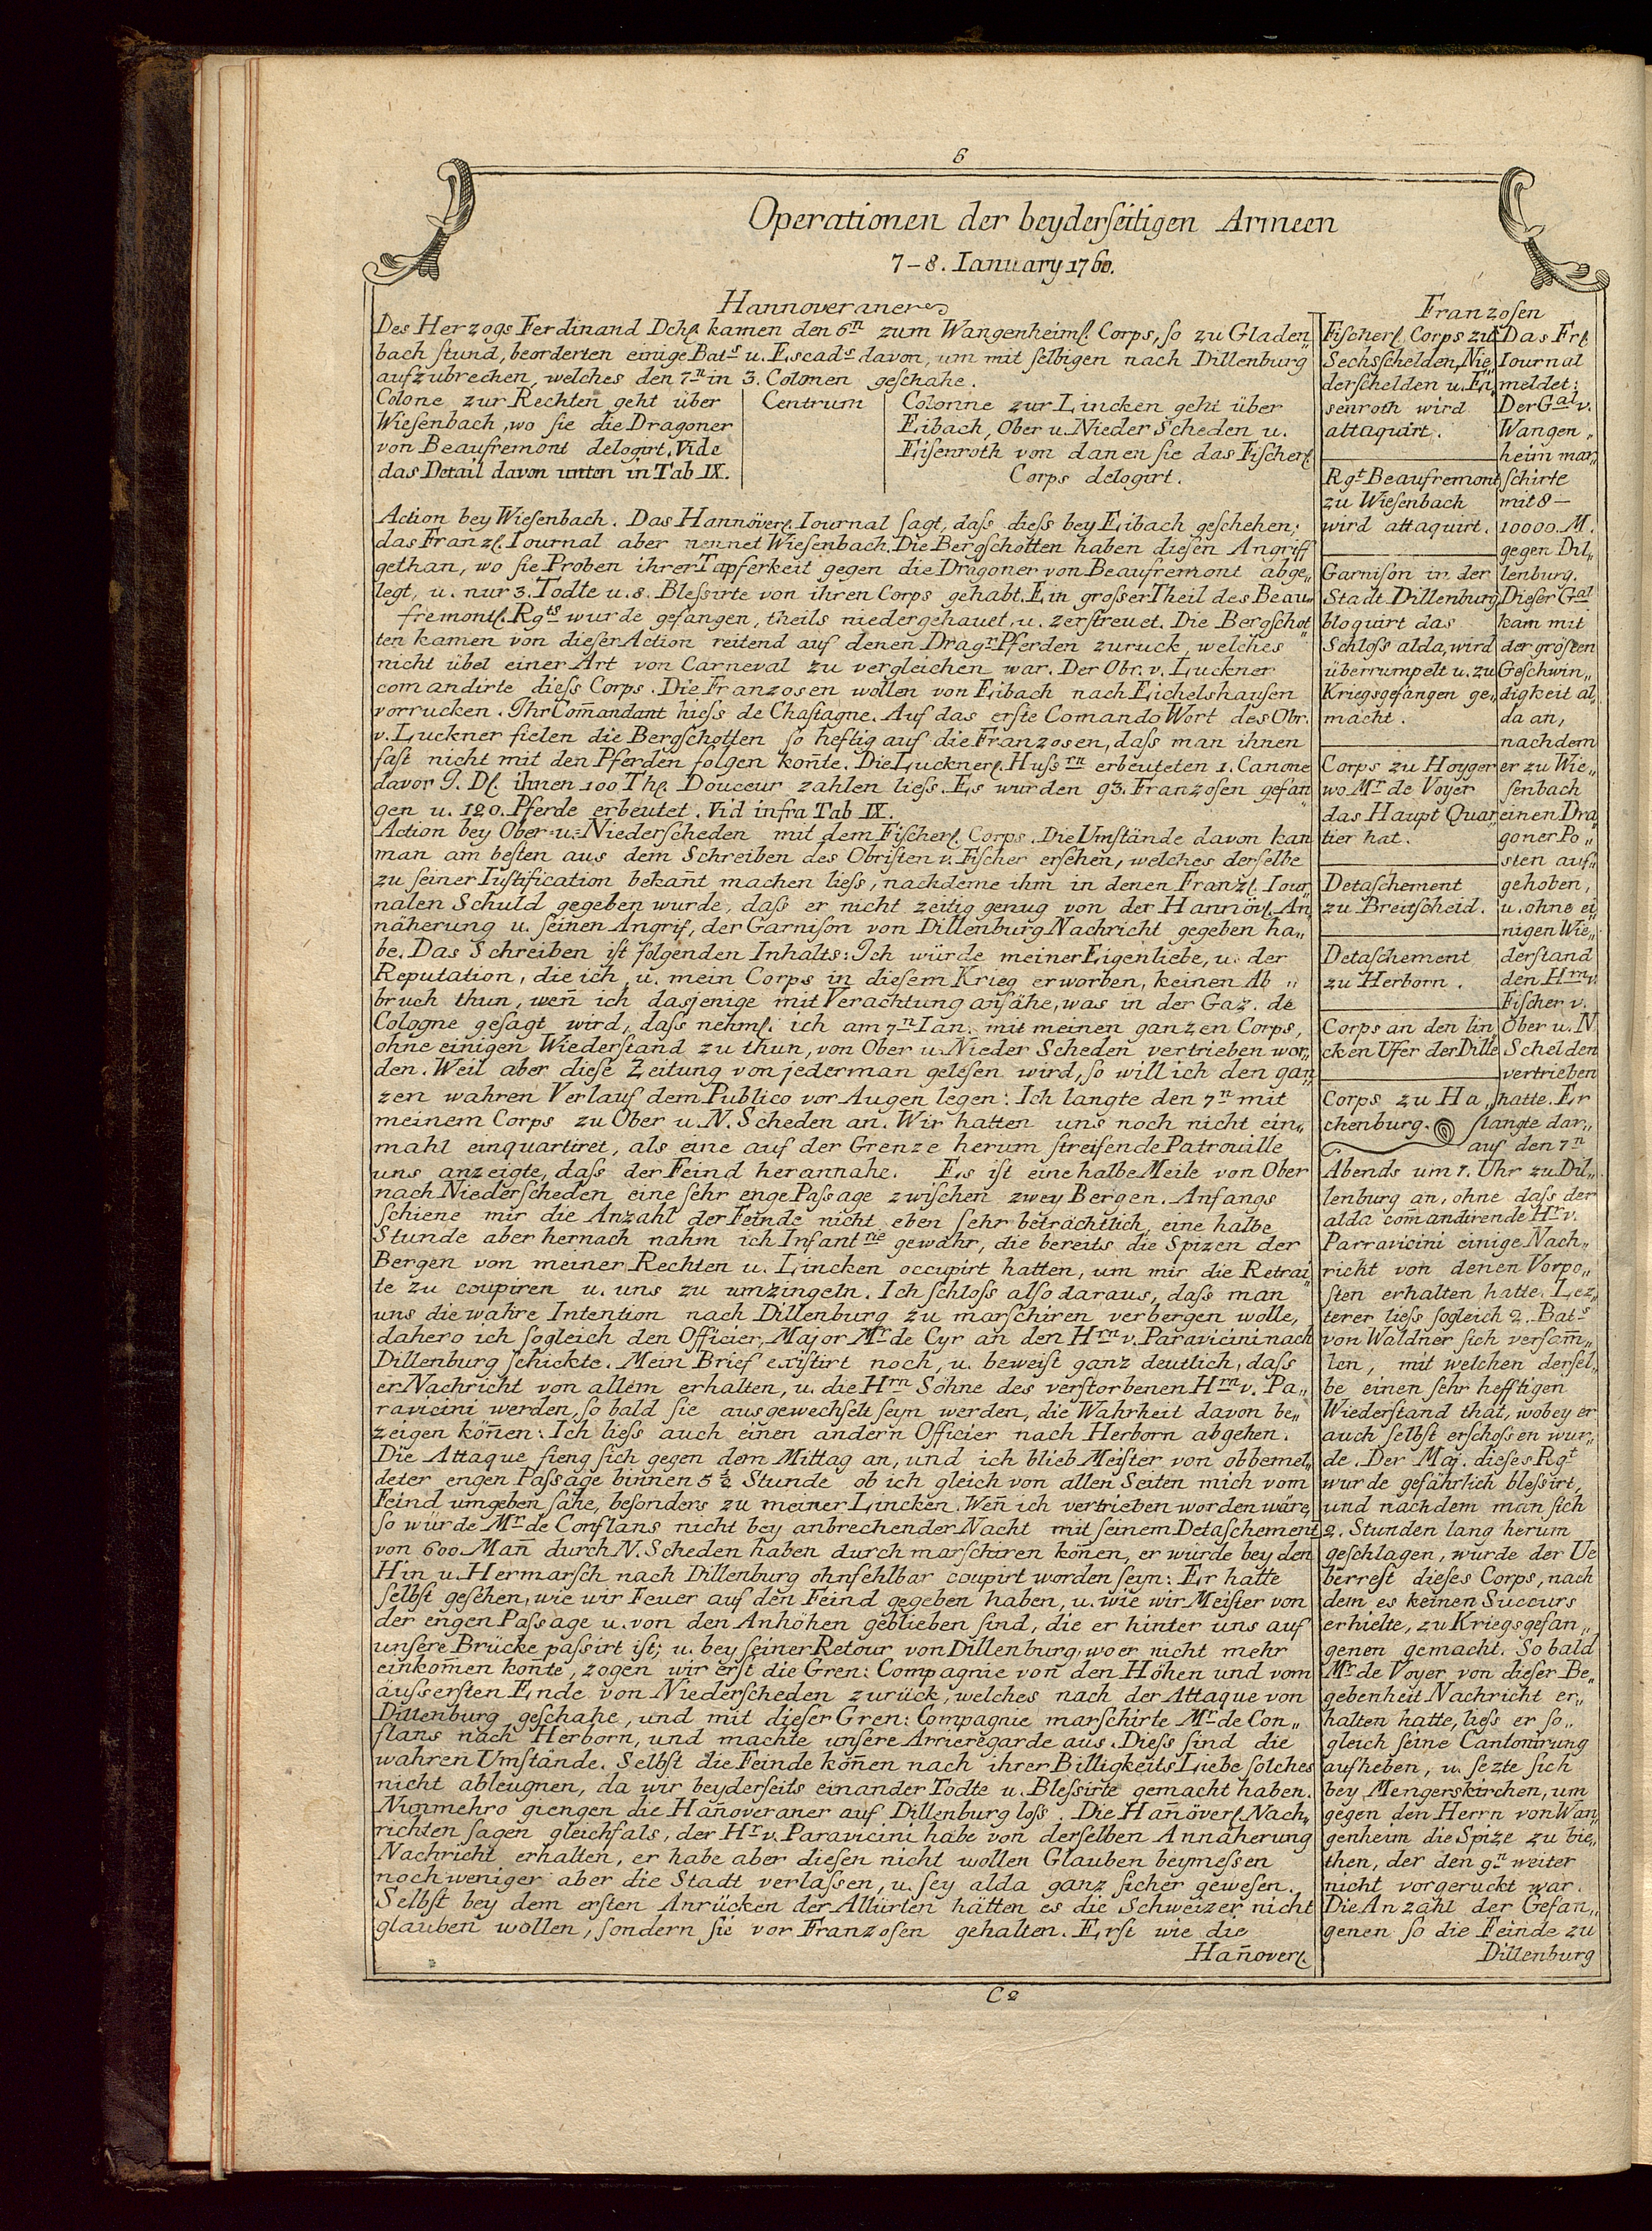 6
Operationen der beyderſeitigen Armeen
7–8. Ianuary 1760.
Hannoveraner
Des Herzogs Ferdinand Dchl. kamen den 6n zum Wangenheiml. Corps, ſo zu Gladen„
bach ſtund, beorderten einige Bats u. Escads davon, um mit ſelbigen nach Dillenburg
aufzubrechen, welches den 7n in 3. Colonen geſchahe.
Colone zur Rechten geht über
Wieſenbach, wo ſie die Dragoner
von Beaufremont delogirt. Vide
das Detail davon unten in Tab IX.
Centrum
Colonne zur Lincken geht über
Eibach, Ober u. Nieder Scheden u.
Eiſenroth von danen ſie das Fiſcherl.
Corps delogirt.
Action bey Wieſenbach. Das Hannöverl. Iournal ſagt, daſs dieſs bey Eibach geſchehen;
das Franzl. Iournal aber nennet Wieſenbach. Die Bergſchotten haben dieſen Angriff
gethan, wo ſie Proben ihrer Tapferkeit gegen die Dragoner von Beaufremont abge„
legt, u. nur 3. Todte u. 8. Bleſsirte von ihren Corps gehabt. Ein groſser Theil des Beau„
fremontl. Rgts wurde gefangen, theils niedergehauet, u. zerſtreuet. Die Bergſchot„
ten kamen von dieſer Action reitend auf denen Dragr Pferden zuruck, welches
nicht übel einer Art von Carneval zu vergleichen war. Der Obr. v. Luckner
comandirte dieſs Corps. Die Franzosen wollen von Eibach nach Eichelshauſen
vorrucken. Ihr Com̄andant hieſs de Chaſtagne. Auf das erſte Comando Wort des Obr.
v. Luckner fielen die Bergſchotten ſo heftig auf die Franzosen, daſs man ihnen
faſt nicht mit den Pferden folgen kon̄te. Die Lucknerl. Huſsrn erbeuteten 1. Canone
davor I. Dl. ihnen 100 Thl. Douceur zahlen lieſs. Es wurden 93. Franzosen gefan„
gen u. 120. Pferde erbeutet. Vid infra Tab IX.
Action bey Ober=u=Niederſcheden mit dem Fiſcherl. Corps. Die Umſtände davon kan
man am beſten aus dem Schreiben des Obriſten v. Fiſcher erſehen, welches derſelbe
zu ſeiner Iuſtification bekan̄t machen lieſs, nachdeme ihm in denen Franzl. Iour„
nalen Schuld gegeben wurde, daſs er nicht zeitig genug von der Hannövl. An„
näherung u. ſeinen Angrif, der Garniſon von Dillenburg Nachricht gegeben ha„
be. Das Schreiben iſt folgenden Inhalts: Ich würde meiner Eigenliebe, u. der
Reputation, die ich, u. mein Corps in dieſem Krieg erworben, keinen Ab„
bruch thun, wen̄ ich dasjenige mit Verachtung anſähe, was in der Gaz. de
Cologne geſagt wird, daſs nehml. ich am 7n Ian. mit meinen ganzen Corps,
ohne einigen Wiederſtand zu thun, von Ober u. Nieder Scheden vertrieben wor„
den. Weil aber dieſe Zeitung von jederman geleſen wird, ſo will ich den gan„
zen wahren Verlauf dem Publico vor Augen legen: Ich langte den 7n mit
meinem Corps zu Ober u. N. Scheden an. Wir hatten uns noch nicht ein„
mahl einquartiret, als eine auf der Grenze herum ſtreifende Patrouille
uns anzeigte, daſs der Feind herannahe. Es iſt eine halbe Meile von Ober
nach Niederſcheden eine ſehr enge Paſsage zwiſchen zwey Bergen. Anfangs
ſchiene mir die Anzahl der Feinde nicht eben ſehr beträchtlich, eine halbe
Stunde aber hernach nahm ich Infantrie gewahr, die bereits die Spizen der
Bergen von meiner Rechten u. Lincken occupirt hatten, um mir die Retrai„
te zu coupiren u. uns zu umzingeln. Ich ſchloſs alſo daraus, daſs man
uns die wahre Intention nach Dillenburg zu marſchiren verbergen wolle,
dahero ich ſogleich den Officier, Major Mr de Cyr an den Hrn v. Paravicini nach
Dillenburg ſchickte. Mein Brief exiſtirt noch, u. beweiſt ganz deutlich, daſs
er Nachricht von allem erhalten, u. die Hrn Sohne des verſtorbenen Hrn v. Pa„
ravicini werden, ſo bald ſie ausgewechſelt ſeyn werden, die Wahrheit davon be„
zeigen kön̄en: Ich lieſs auch einen andern Officier nach Herborn abgehen.
Die Attaque fieng ſich gegen dem Mittag an, und ich blieb Meiſter von obbemel„
deter engen Paſsage binnen 5 1/2 Stunde ob ich gleich von allen Seiten mich vom
Feind umgeben ſahe, beſonders zu meiner Lincken. Wen̄ ich vertrieben worden wäre,
ſo würde Mr de Conflans nicht bey anbrechender Nacht mit ſeinem Detaſchement
von 600. Man̄ durch N. Scheden haben durch marſchiren kön̄en, er würde bey den
Hin u. Hermarſch nach Dillenburg ohnfehlbar coupirt worden ſeyn: Er hatte
ſelbſt geſehen, wie wir Feuer auf den Feind gegeben haben, u. wie wir Meiſter von
der engen Paſsage u. von den Anhöhen geblieben ſind, die er hinter uns auf
unſere Brücke paſsirt iſt; u. bey ſeiner Retour von Dillenburg, wo er nicht mehr
einkom̄en kon̄te, zogen wir erſt die Gren: Compagnie von den Höhen und vom
äuſserſten Ende von Niederſcheden zurück, welches nach der Attaque von
Dillenburg geſchahe, und mit dieſer Gren: Compagnie marſchirte Mr de Con„
flans nach Herborn, und machte unſere Arrieregarde aus. Dieſs ſind die
wahren Umſtände. Selbſt die Feinde kön̄en nach ihrer Billigkeits Liebe ſolches
nicht ableugnen, da wir beyderſeits einander Todte u. Bleſsirte gemacht haben.
Nunmehro giengen die Han̄overaner auf Dillenburg loſs. Die Han̄överl. Nach„
richten ſagen gleichfals, der Hr v. Paravicini habe von derſelben Annäherung
Nachricht erhalten, er habe aber dieſen nicht wollen Glauben beymeſsen
noch weniger aber die Stadt verlaſsen, u. ſey alda ganz ſicher geweſen.
Selbſt bey dem erſten Anrücken der Alliirten hätten es die Schweizer nicht
glauben wollen, ſondern ſie vor Franzosen gehalten. Erſt wie die
Han̄overl.
Franzosen
Fiſcherl. Corps zu
Sechsſchelden, Nie„
derſchelden u. Ei„
senroth wird
attaquirt.
Rgt Beaufremont
zu Wieſenbach
wird attaquirt.
Garniſon in der
Stadt Dillenburg
bloquirt das
Schloſs alda, wird
überrumpelt u. zu
Kriegsgefangen ge„
macht.
Corps zu Hoyger
wo Mr de Voyer
das Haupt Quar„
tier hat.
Detaſchement
zu Breitſcheid.
Detaſchement
zu Herborn.
Corps an den lin„
cken Ufer der Dille
Corps zu Ha„
chenburg.
Das Frl.
Iournal
meldet:
Der Gal v.
Wangen„
heim mar„
ſchirte
mit 8–
10000. M.
gegen Dil„
lenburg.
Dieſer Gal
kam mit
der gröſten
Geſchwin„
digkeit al„
da an,
nachdem
er zu Wie„
ſenbach
einen Dra„
goner Po„
ſten auf„
gehoben,
u. ohne ei„
nigen Wie„
derſtand
den Hrn v.
Fiſcher v.
Ober u. N.
Schelden
vertrieben
hatte. Er
langte dar„
auf den 7n
Abends um 7. Uhr zu Dil„
lenburg an, ohne daſs der
alda com̄andirende Hr v.
Parravicini einige Nach„
richt von denen Vorpo„
ſten erhalten hatte. Lez„
terer lieſs ſogleich 2. Bats
von Waldner ſich verſam̄„
len, mit welchen derſel„
be einen ſehr hefftigen
Wiederſtand that, wobey er
auch ſelbſt erſchoſsen wur„
de. Der Maj. dieſes Rgt
wurde gefährlich bleſsirt,
und nachdem man ſich
2. Stunden lang herum
geſchlagen, wurde der Ue
berreſt dieſes Corps, nach
dem es keinen Succurs
erhielte, zu Kriegsgefan„
genen gemacht. So bald
Mr de Voyer von dieſer Be„
gebenheit Nachricht er„
halten hatte, lieſs er ſo„
gleich ſeine Cantonirung
aufheben, u. ſezte ſich
bey Mengerskirchen, um
gegen den Herrn von Wan„
genheim die Spize zu bie„
then, der den 9n weiter
nicht vorgeruckt war.
Die Anzahl der Gefan„
genen ſo die Feinde zu
Dillenburg
C2